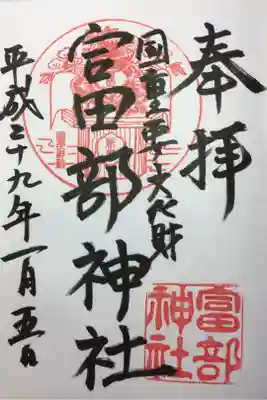 奉拝
国重要文化財
富部神社
平成二十九年一月五日
富部
神社